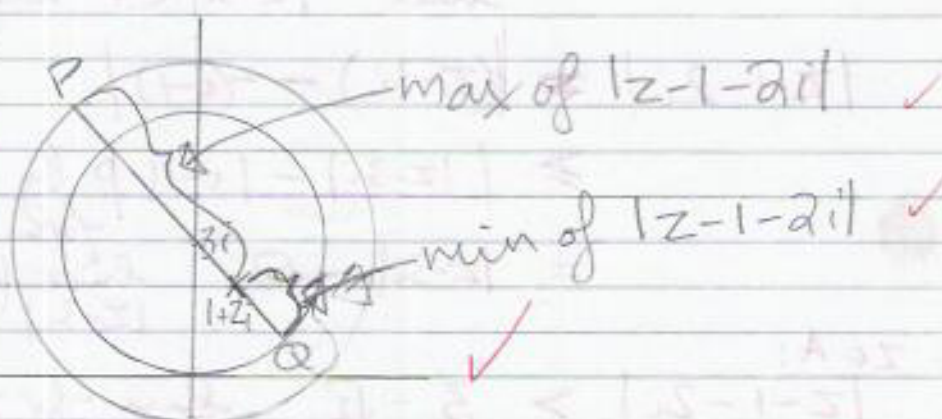 P
max of |z-1-2i|
3i
min of |z-1-2i|
1+2i
Q